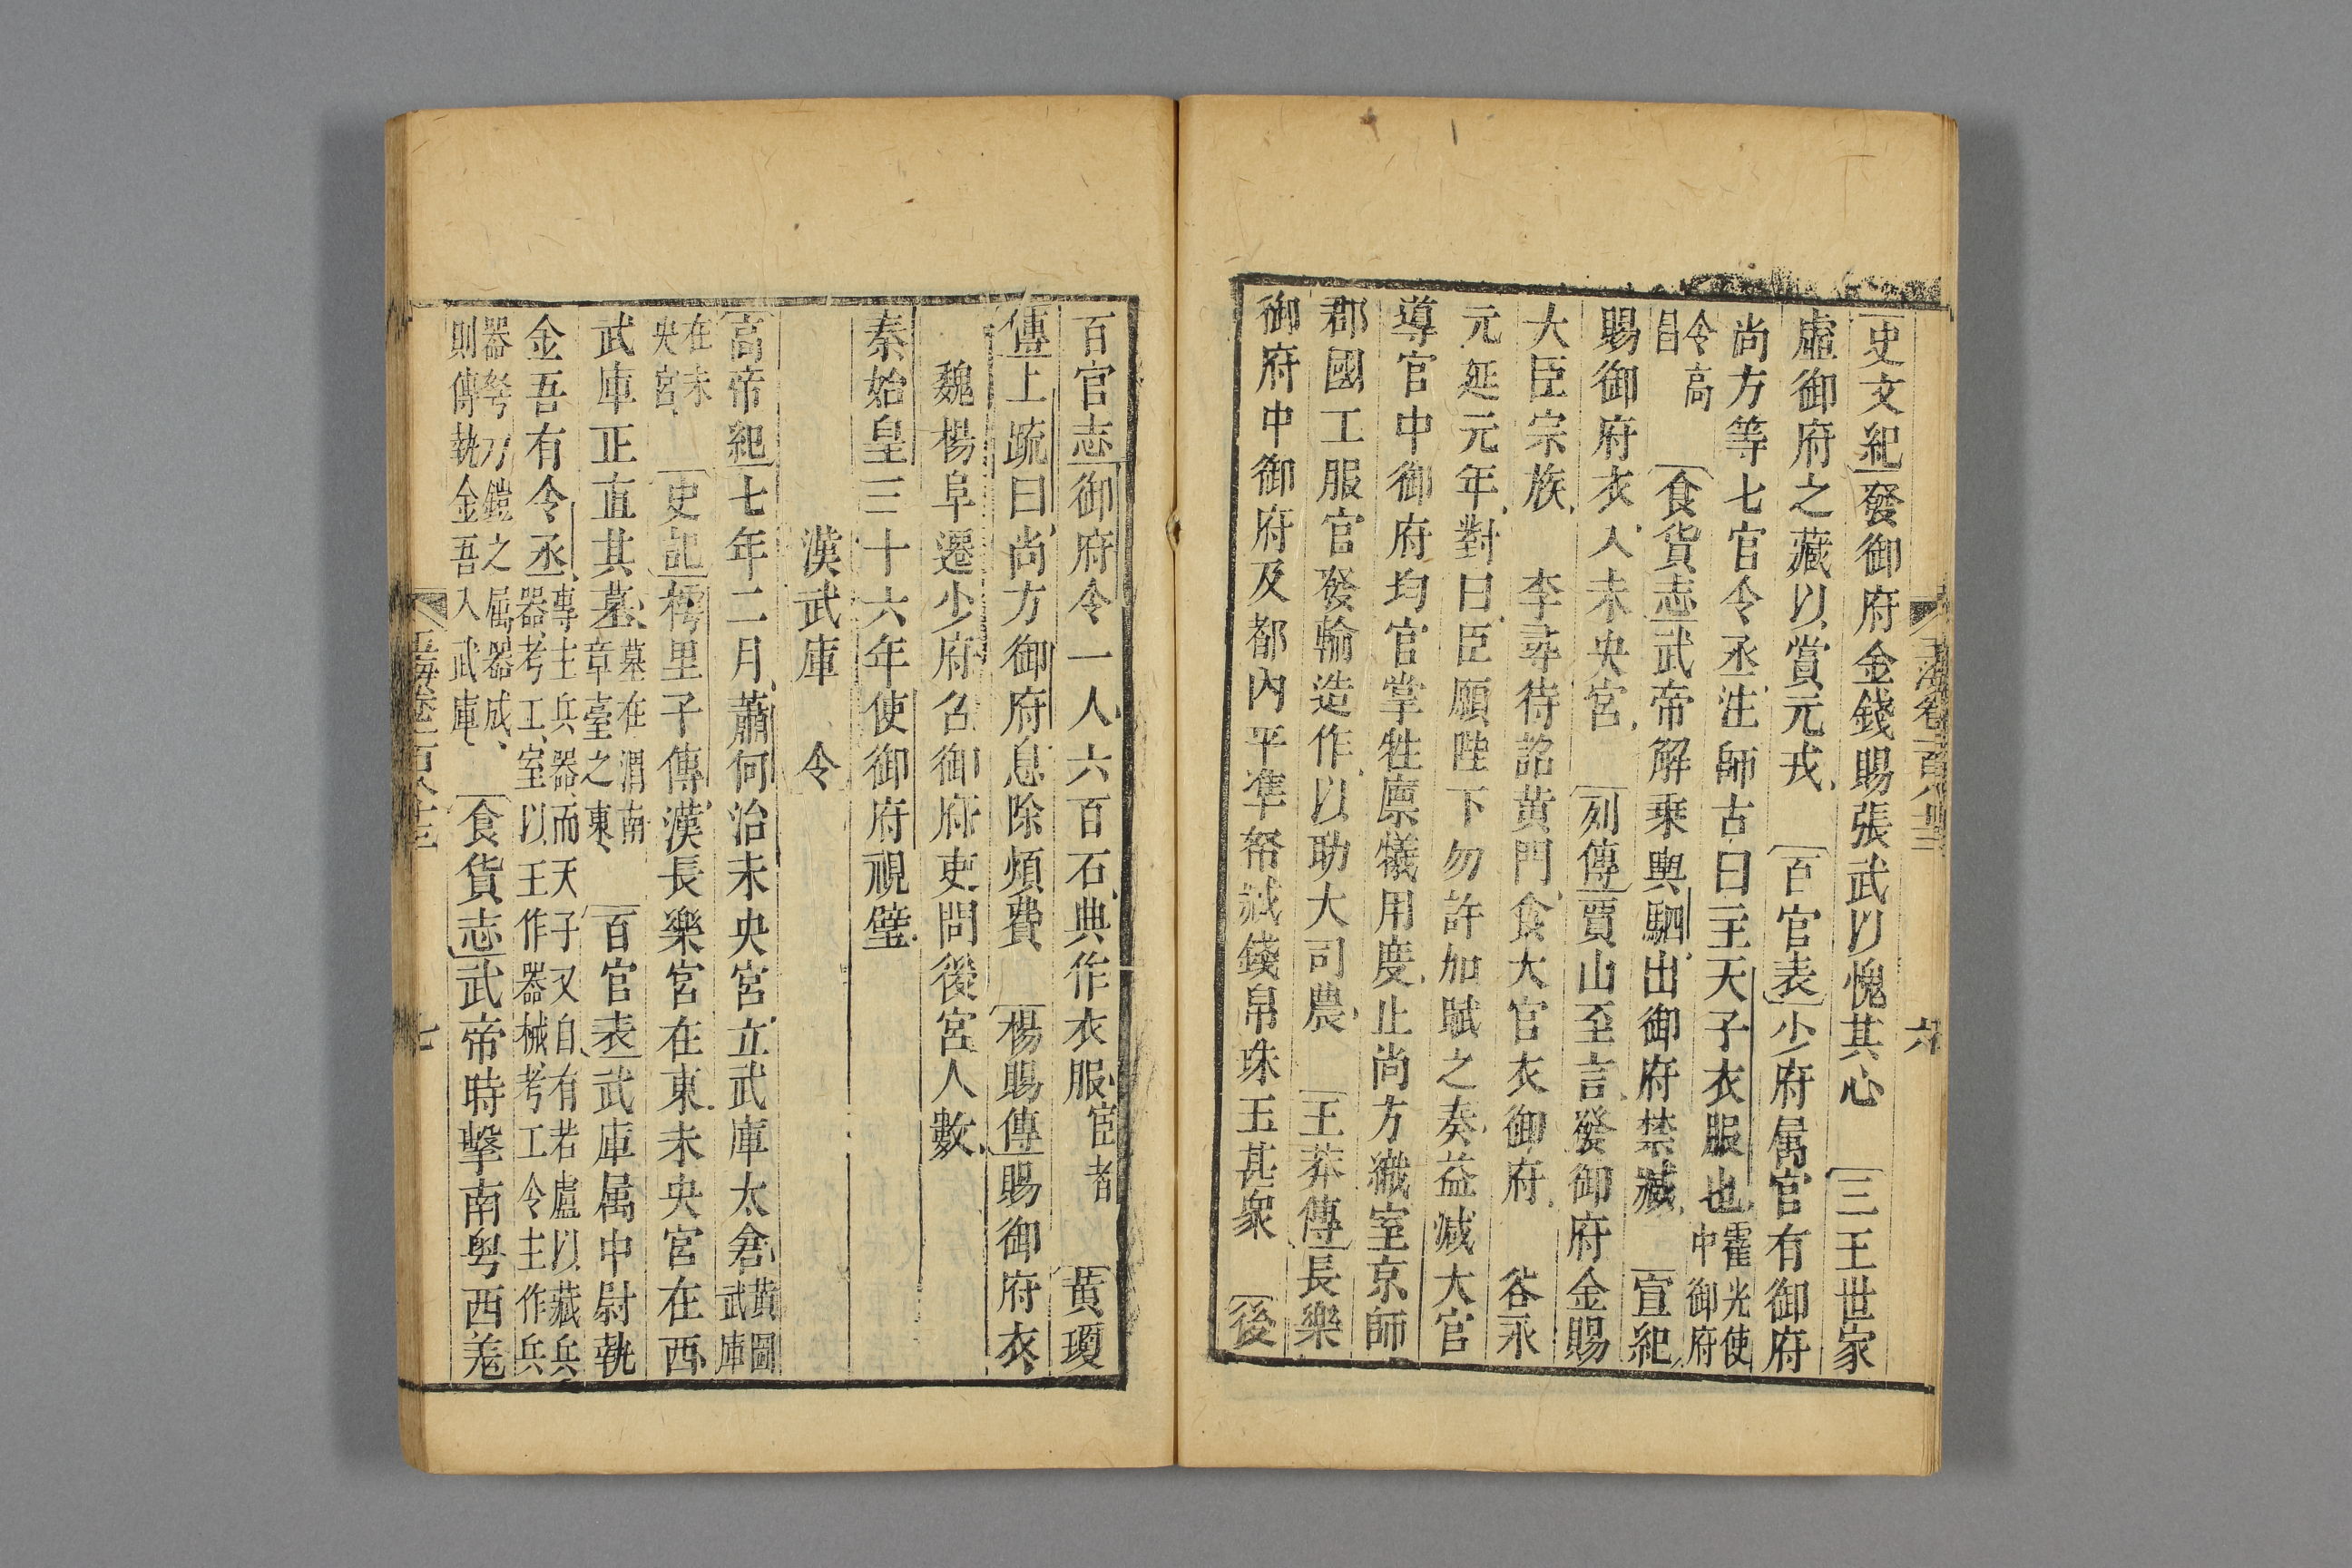 史文紀發御府金錢賜張武以愧其心　三王世家
虛御府之藏以賞元戎　百官表少府属官有御府
尚方等七官令丞注師古曰主天子衣服也霍光使中御府
令高昌　食貨志武帝解乗輿駟出御府禁臧　宣紀
賜御府衣入未央宮　列傳賈山至言發御府金賜
大臣宗族　李尋待詔黄門食大官衣御府　谷永
元延元年對曰臣願陛下勿許加賦之奏益減大官
導官中御府均官掌牲廪犠用度止尚方織室京師
郡國工服官發輸造作以助大司農　王莽傳長樂
御府中御府及都内平凖帑蔵錢帛珠玉甚衆　後
玉海卷一百八十三　六
百官志御府令一人六百石典作衣服宦者　黃瓊
傳上疏曰尚方御府息除煩費　楊賜傳賜御府衣
魏楊阜遷少府召御府吏問後宮人數
秦始皇三十六年使御府視璧
漢武庫　令
高帝紀七年二月蕭何治未央宮立武庫太倉黃圖武庫
在未央宮　史記樗里子傳漢長樂宮在東未央宮在西
武庫正直其墓墓在渭南章臺之東　百官表武庫属中尉執
金吾有令丞專主兵器而天子又自有若盧以藏兵器考工室以主作器械考工令主作兵
器弩刀鎧之屬器成則傳執金吾入武庫　食貨志武帝時擊南粤西羗
玉海卷一百八十三　七